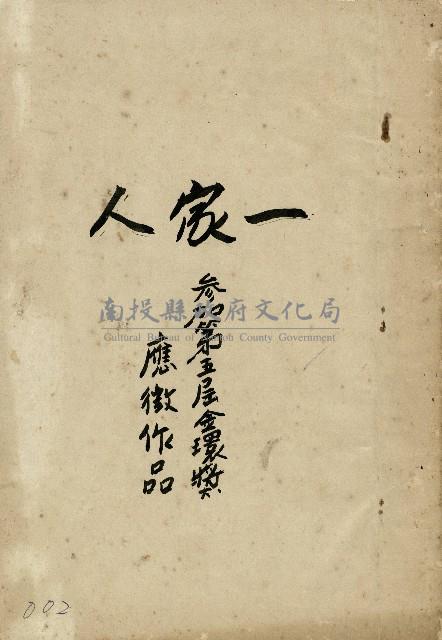 一家人
參加第五屆金環獎
應徵作品
南投縣政府文化局
Cultural Bureau of Nantou County Government
002